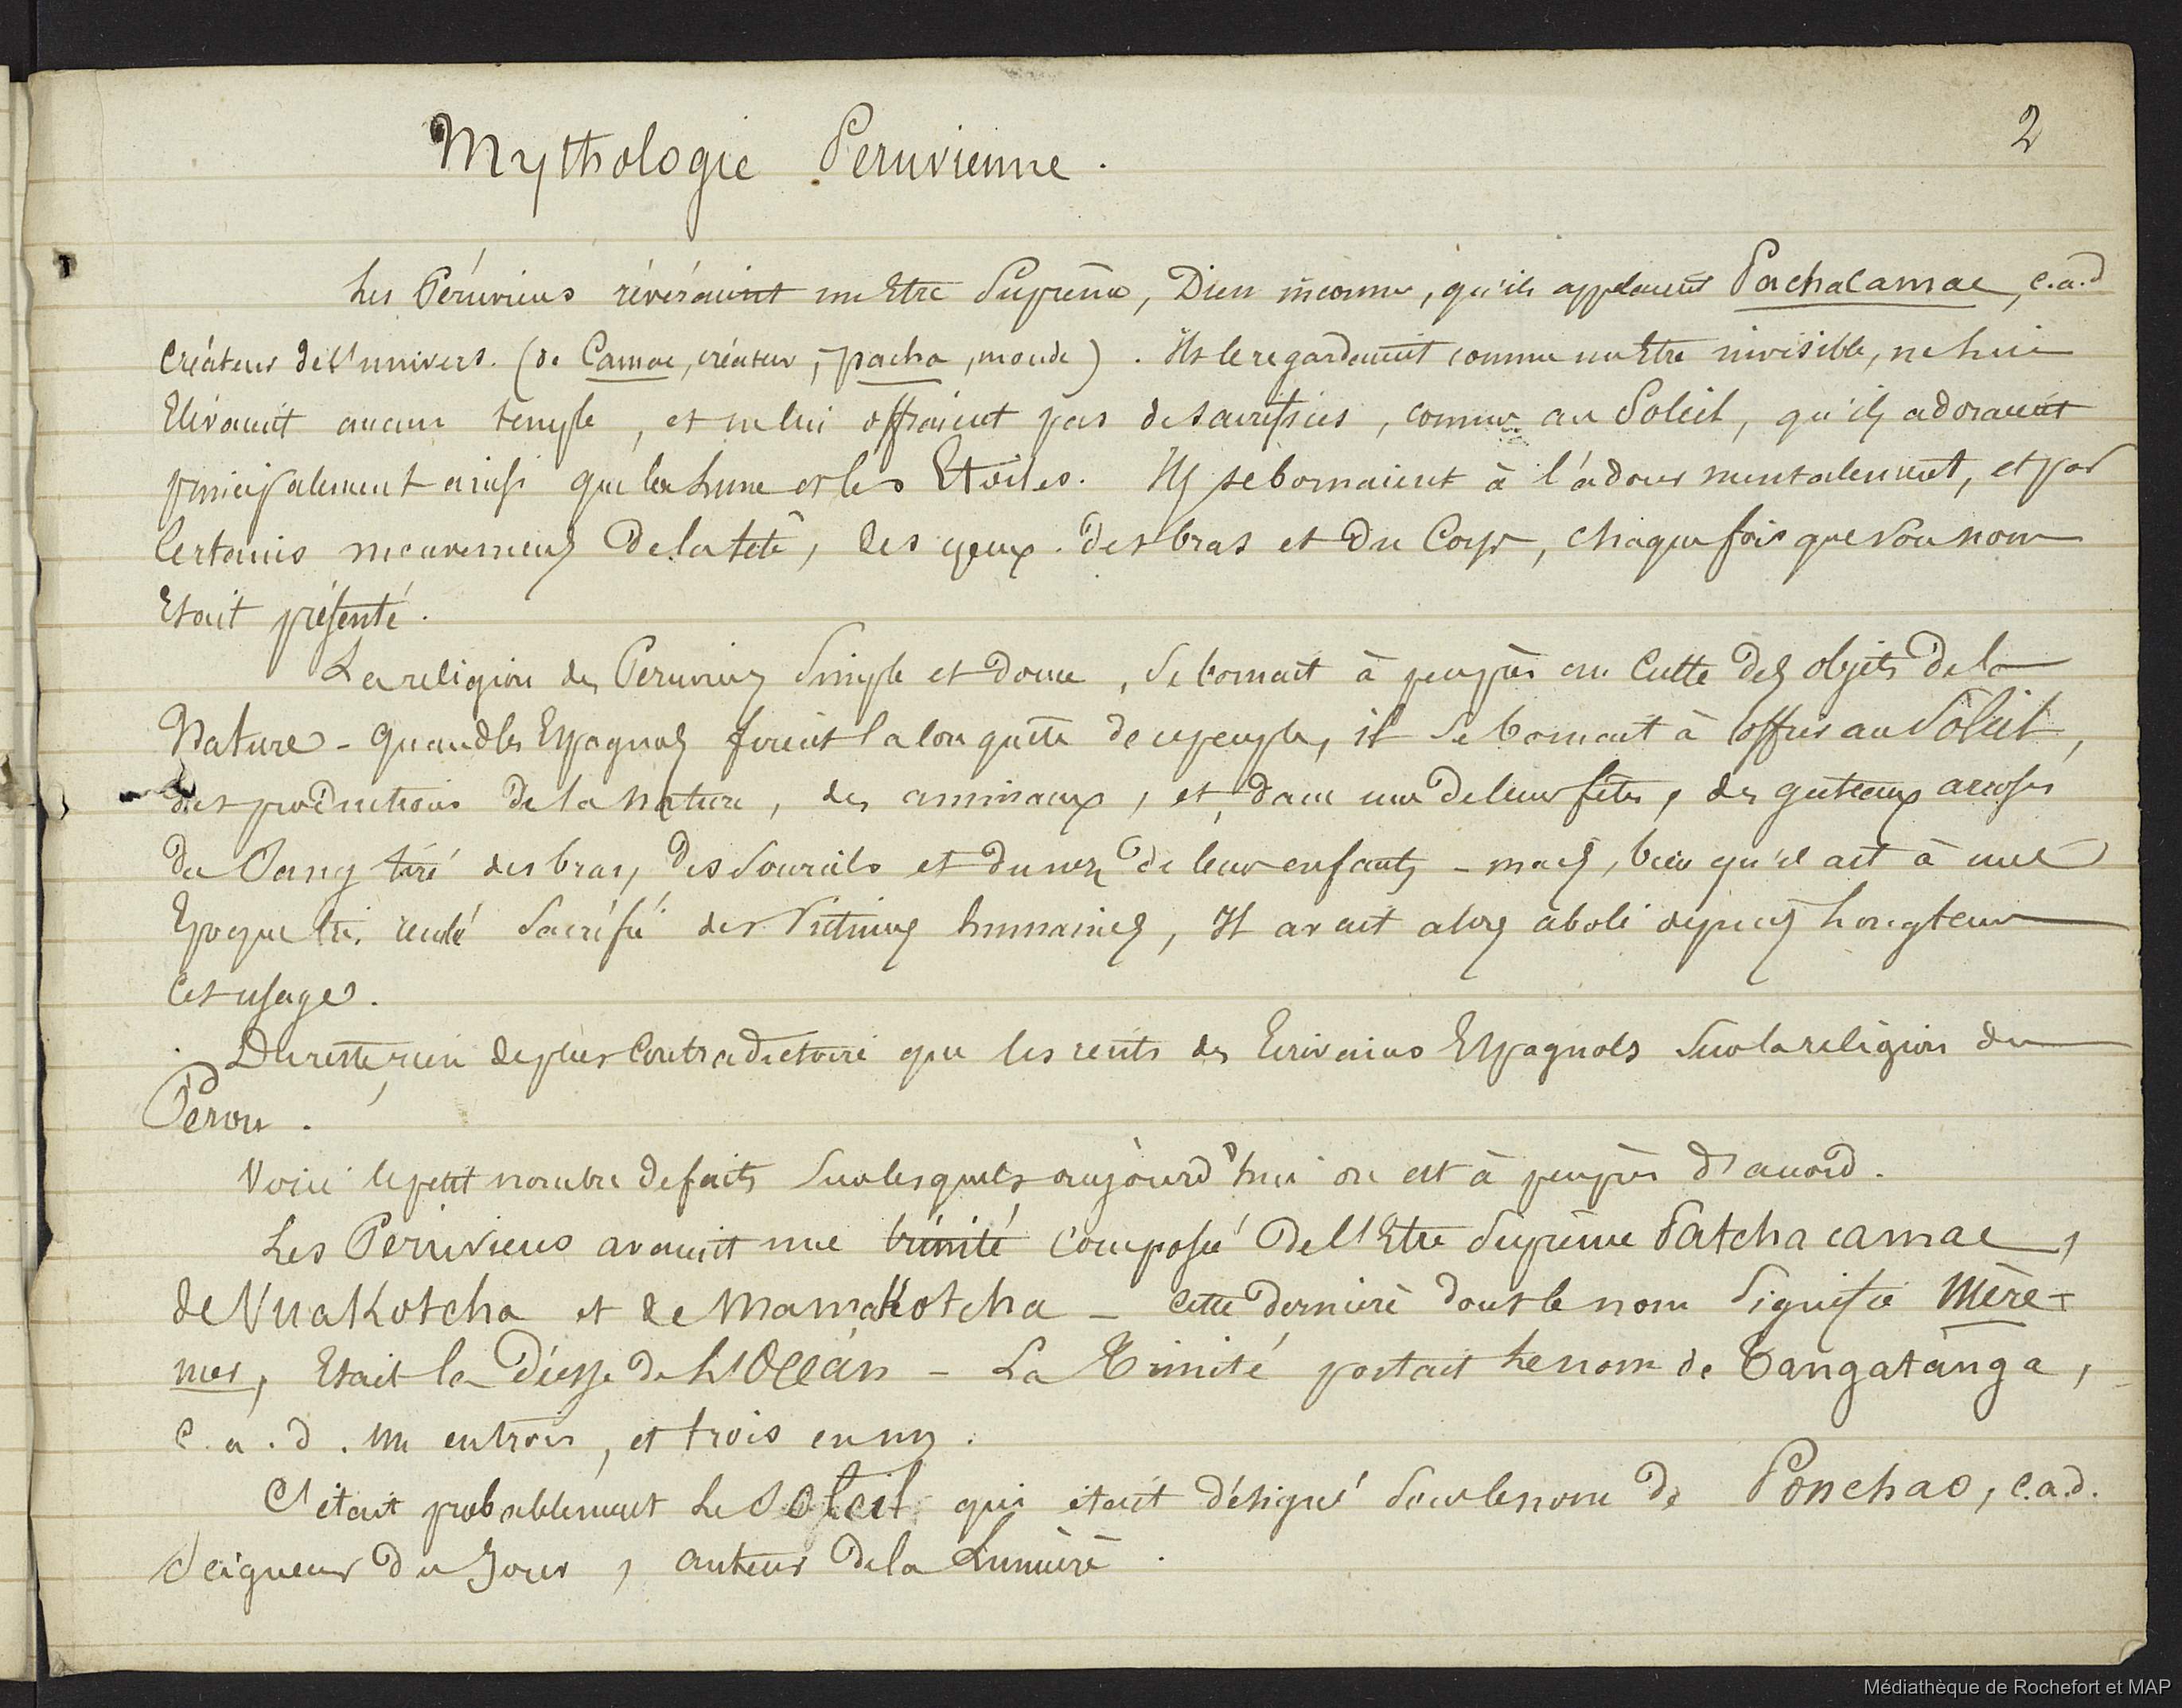 2
Mythologie Peruvienne.
Les Péruviens révéraient un Etre Suprême, Dieu inconnu, qu'ils appelaient Pachacamac, c.a.d
Créateur de l'univers. (de Camac, créateur, pacha, monde). Ils le regardaient comme un Etre invisible, ne lui
Elevaient aucun temple, et ne lui offraient pas de sacrifices, comme au Soleil, qu'ils adoraient
principalement ainsi que la Lune et les Etoiles. Ils se bornaient à l'adorer mentalement, et par
Certains mouvemens de la tête, des yeux. des bras et du Corps, chaque fois que son nom
Etait présenté.
La religion des Peruviens Simple et douce, se bornait à peu près au Culte des objets de la
Nature - quand les Espagnols firent la conquête de ce peuple, il se bornait à offrir au Soleil,
des productions de la nature, des animaux, et, dans une de leurs fêtes, des gateaux arrosés
du Sang tiré des bras, des Sourcils et du nez de leurs enfants - mais, bien qu'il ait à une
Epoque très reculé Sacrifié des Victimes humaines, Il avait alors aboli depuis longtems
Cet usage.
Du reste rien de plus Contradictoire que les récits des Ecrivains Espagnols Sur la religion du
Pérou.
Voici le petit nombre de faits Sur lesquels aujourd'hui on est à peu près d'accord.
Les Peruviens avaient une trinité Composée de l'Etre Suprême Patchacamac,
de Virakotcha et de Mamakotcha - Cette dernière dont le nom Signifie Mère-
mer, Etait la Déesse de L'Océan - La Trinité portait le nom de Tangatanga,
c.a.d. un en trois, et trois en un.
C'était probablement Le Soleil qui était désigné Sous le nom de Ponchao, c.a.d.
Seigneur du Jour, auteur de la Lumière.
Médiathèque de Rochefort et MAP